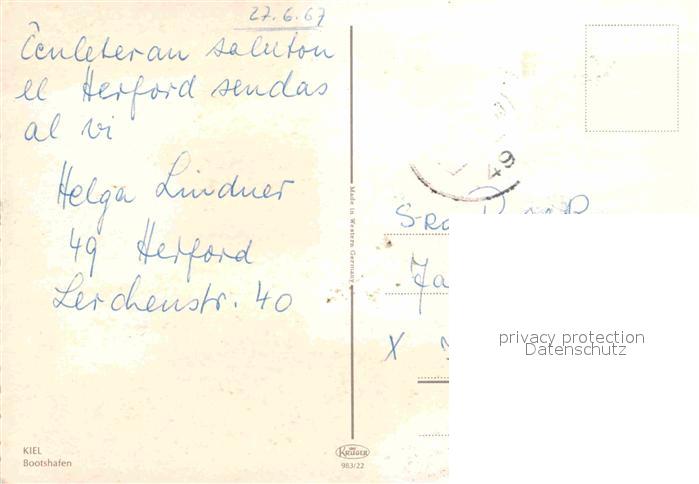 27.6.67
Ĉenleteran saluton
el Herford sendas
al vi
Helga Lindner
49 Herford
Lerchenstr. 40
KIEL
Bootshafen
Made in Western Germany
KRÜGER
983/22
49
S-ro
X
privacy protection
Datenschutz